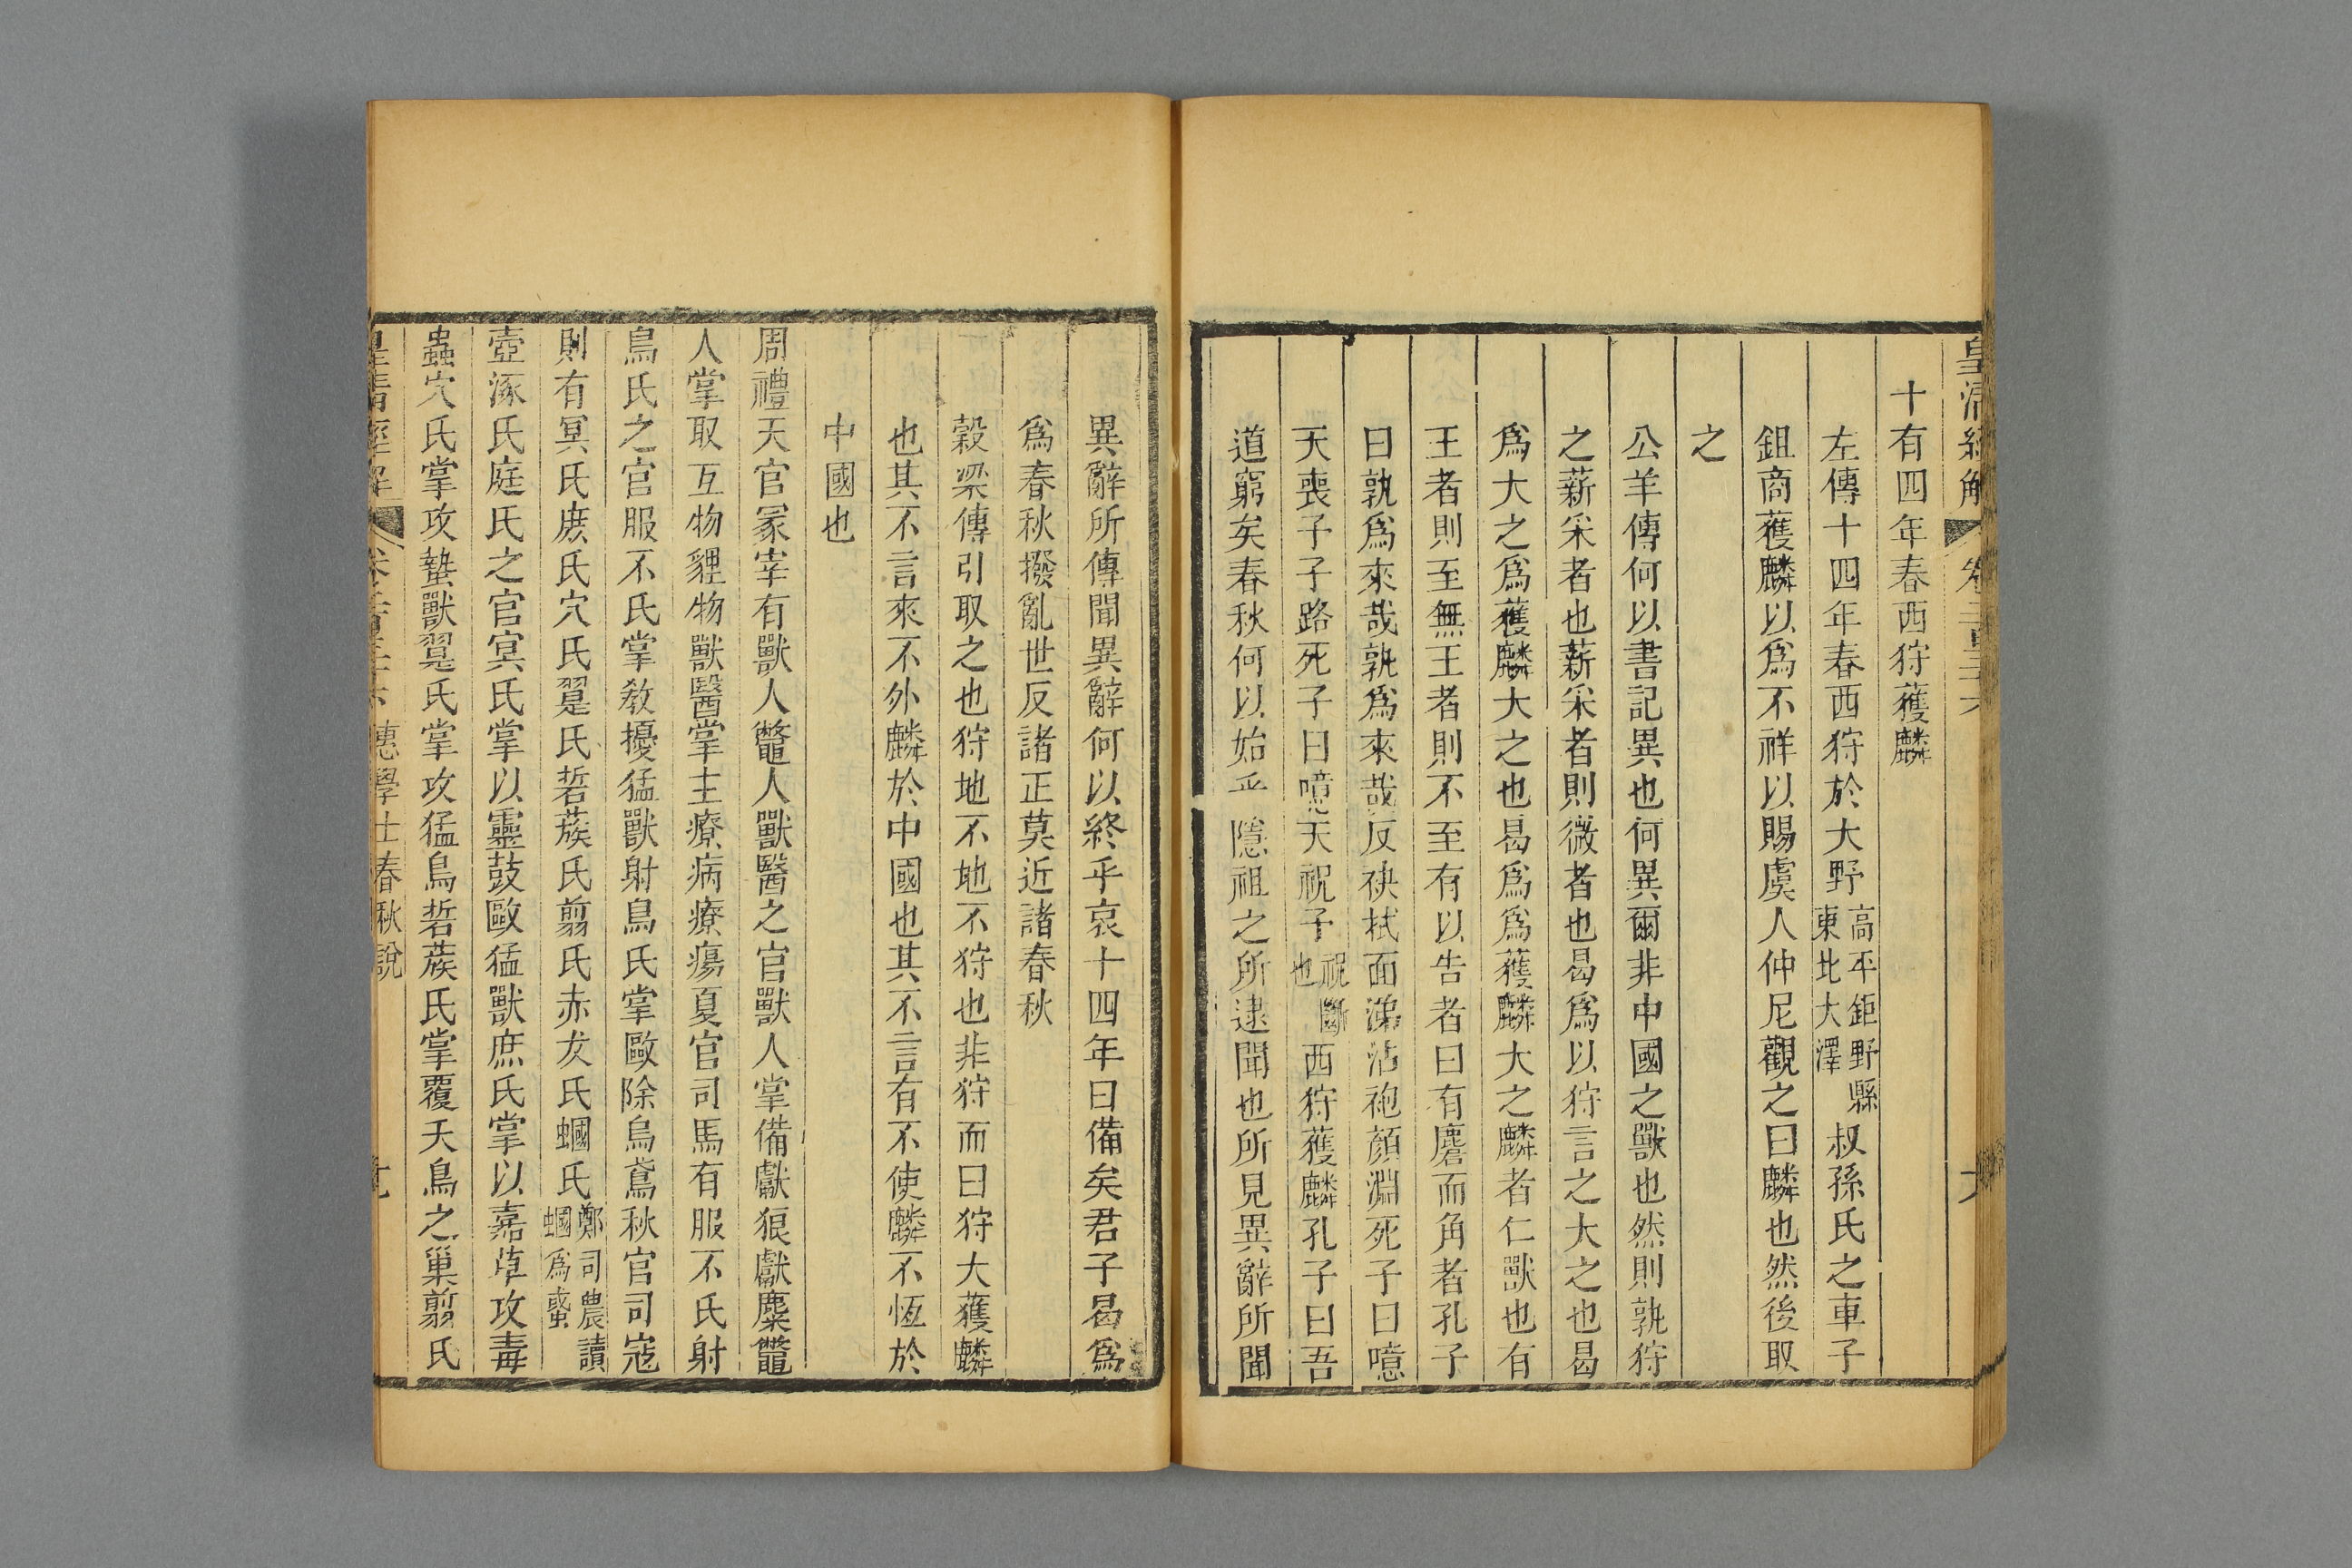 皇清經解 卷二百三十六 
十有四年春西狩獲麟
左傳十四年春西狩於大野高平鉅野縣東北大澤叔孫氏之車子
鉏商獲麟以爲不祥以賜虞人仲尼觀之曰麟也然後取
之
公羊傳何以書記異也何異爾非中國之獸也然則孰狩
之薪采者也薪采者則微者也曷爲以狩言之大之也曷
爲大之爲獲麟大之也曷爲爲獲麟大之麟者仁獸也有
王者則至無王者則不至有以告者曰有麏而角者孔子
曰孰爲來哉孰爲來哉反袂拭面涕沾袍顏淵死子曰噫
天喪子子路死子曰噫天祝子祝斷也西狩獲麟孔子曰吾
道窮矣春秋何以始乎隱祖之所逮聞也所見異辭所聞
異辭所傳聞異辭何以終乎哀十四年曰備矣君子曷爲
爲春秋撥亂世反諸正莫近諸春秋
穀梁傳引取之也狩地不地不狩也非狩而曰狩大獲麟
也其不言來不外麟於中國也其不言有不使麟不恆於
中國也
周禮天官冢宰有獸人鼈人獸醫之官獸人掌備獻狼獻麋鼈
人掌取互物貍物獸醫掌主療病療瘍夏官司馬有服不氏射
鳥氏之官服不氏掌敎擾猛獸射鳥氏掌歐除烏鳶秋官司寇
則有冥氏庶氏穴氏翨氏硩蔟氏翦氏赤犮氏蟈氏鄭司農讀蟈爲蜮
壺涿氏庭氏之官冥氏掌以靈鼓歐猛獸庶氏掌以嘉草攻毒
蟲穴氏掌攻蟄獸翨氏掌攻猛鳥硩蔟氏掌覆夭鳥之巢翦氏
皇清經解 惠學士春秋說